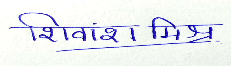 शिवांश मिश्र